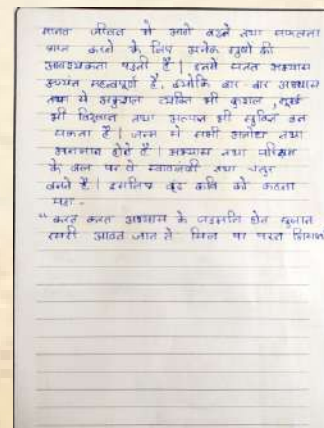 मानव जीवन में आगे बढ़ने तथा सफलता
प्राप्त करने के लिए अनेक गुणों की
आवश्यकता पड़ती है | इनमें सतत अभ्यास
अत्यंत महत्वपूर्ण है, क्योंकि बार-बार अभ्यास
तथा से अकुशल व्यक्ति भी कुशल, मूर्ख
भी विद्वान तथा भी बन
सकता है | जन्म से सभी अबोध तथा
होते हैं | अभ्यास तथा परिश्रम
के बल पर वे स्वावलंबी तथा चतुर
बनते हैं | इसलिए वृंद कवि को कहना
पड़ा -
“करत करत अभ्यास के जड़मति होत सुजान
रसरी आवत जात ते सिल पर परत निशान